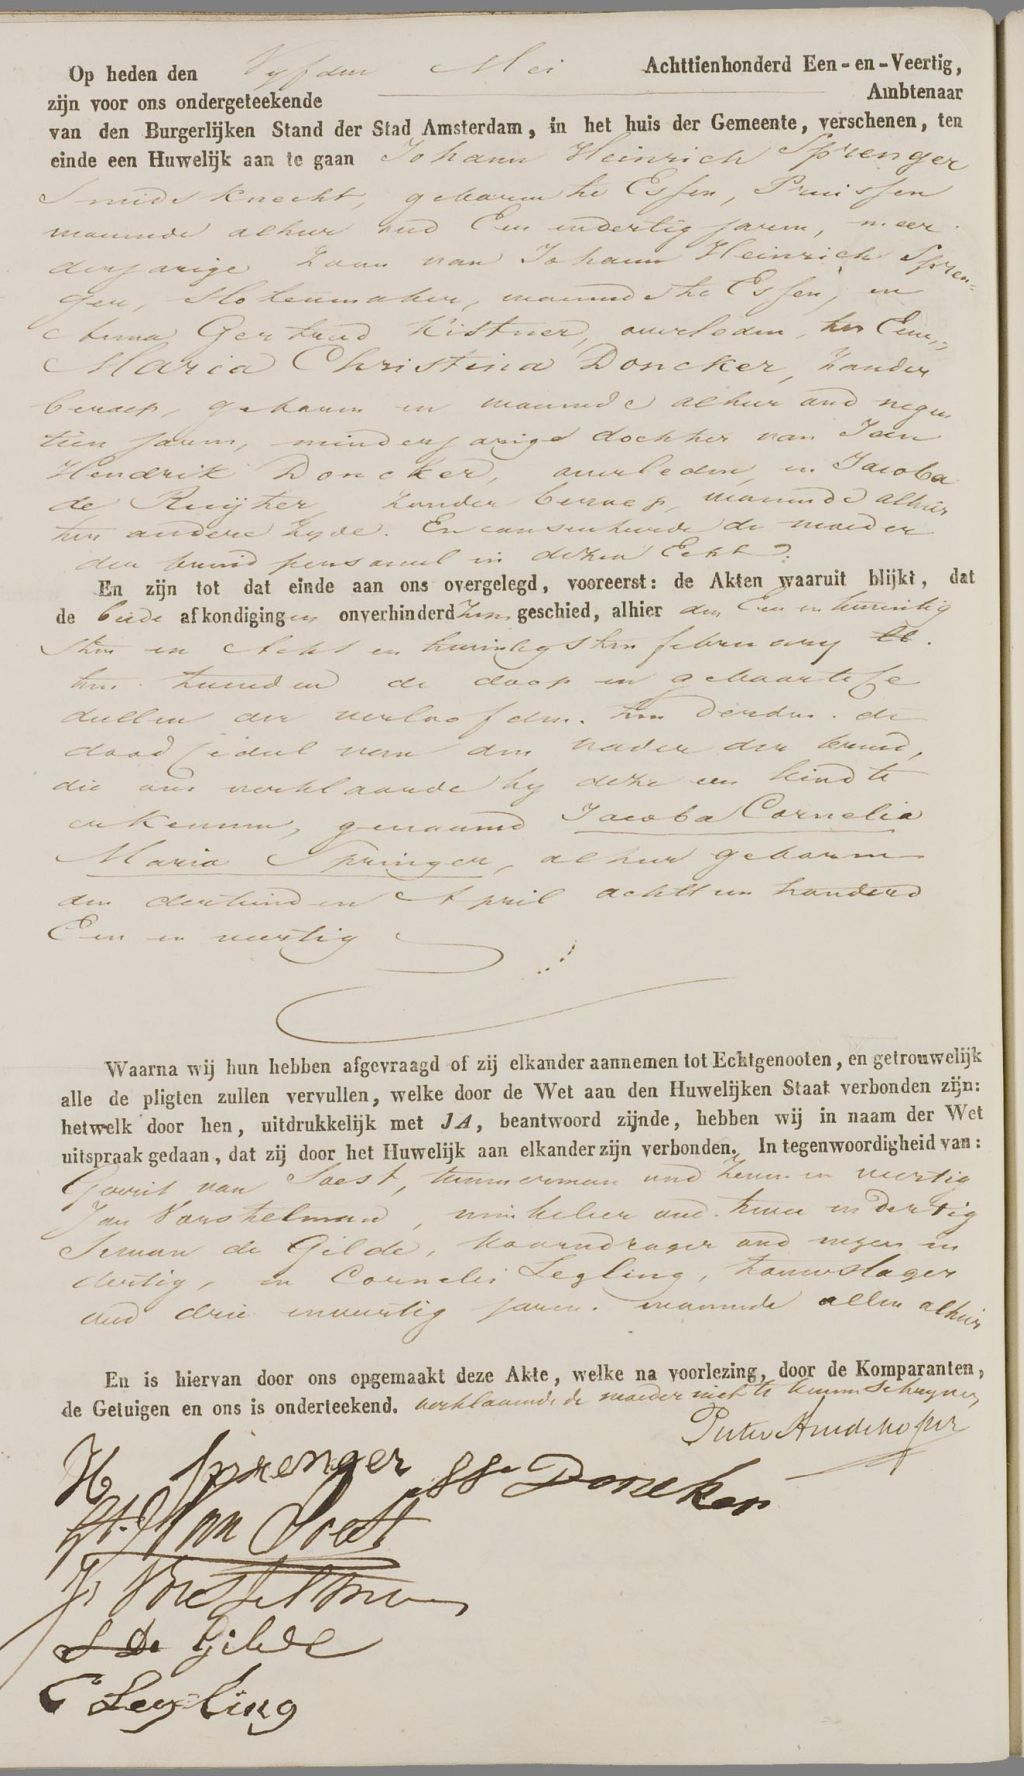 Op heden den Vyfden Mei Achttienhonderd Een-en-Veertig,
zijn voor ons ondergeteekende Ambtenaar
van den Burgerlijken Stand der Stad Amsterdam, in het huis der Gemeente, verschenen, ten
einde een Huwelijk aan te gaan Johann Heinrich Sprenger
Smidsknecht, geboren te Essen, Pruissen
wonende alhier oud Een en dertig jaren, meer
derjarige Zoon van Johann Heinrich Spren-
ger, Slotenmaker, wonende te Essen, en
Anna Gertrud Kistner, overleden, ter Eenre,
Maria Christina Doncker, zonder
beroep, geboren en wonende alhier oud negen
tien jaren, minderjarige dochter van Jan
Hendrik Doncker, overleden, en Jacoba
de Ruijter, zonder beroep, wonende alhier
ter andere zyde. En consenteerde de moeder
der bruid personeel in dezen Echt.
En zijn tot dat einde aan ons overgelegd, vooreerst: de Akten waaruit blijkt, dat
de beide afkondigingen onverhinderd zyn geschied, alhier den Een en twintig
sten en Acht en twintigsten february ll.
ten tweeden de doop en geboorte Ce
dullen der verloofden. ten derden. de
dood Cedul van den vader der bruid,
die ons verklaarde by deze een kind te
erkennen, genaamd Jacoba Cornelia
Maria Springer, alhier geboren
den dertienden April achttien honderd
Een en veertig
Waarna wij hun hebben afgevraagd of zij elkander aannemen tot Echtgenooten, en getrouwelijk
alle de pligten zullen vervullen, welke door de Wet aan den Huwelijken Staat verbonden zijn:
hetwelk door hen, uitdrukkelijk met JA, beantwoord zijnde, hebben wij in naam der Wet
uitspraak gedaan, dat zij door het Huwelijk aan elkander zijn verbonden. In tegenwoordigheid van:
Gerrit van Soest, timmerman oud zeven en veertig
Jan Vorstelman, winkelier oud twee en dertig
Seman de Gilde, koorndrager oud negen en
dertig, en Cornelis Legling, touwslager
oud drie en veertig jaren. wonende allen alhier
En is hiervan door ons opgemaakt deze Akte, welke na voorlezing, door de Komparanten,
de Getuigen en ons is onderteekend. verklaarende de moeder niet te kunnen schryven
Pieter
H Sprenger Doncker
van Soest
J Vorstelman
S De Gilde
C Legling